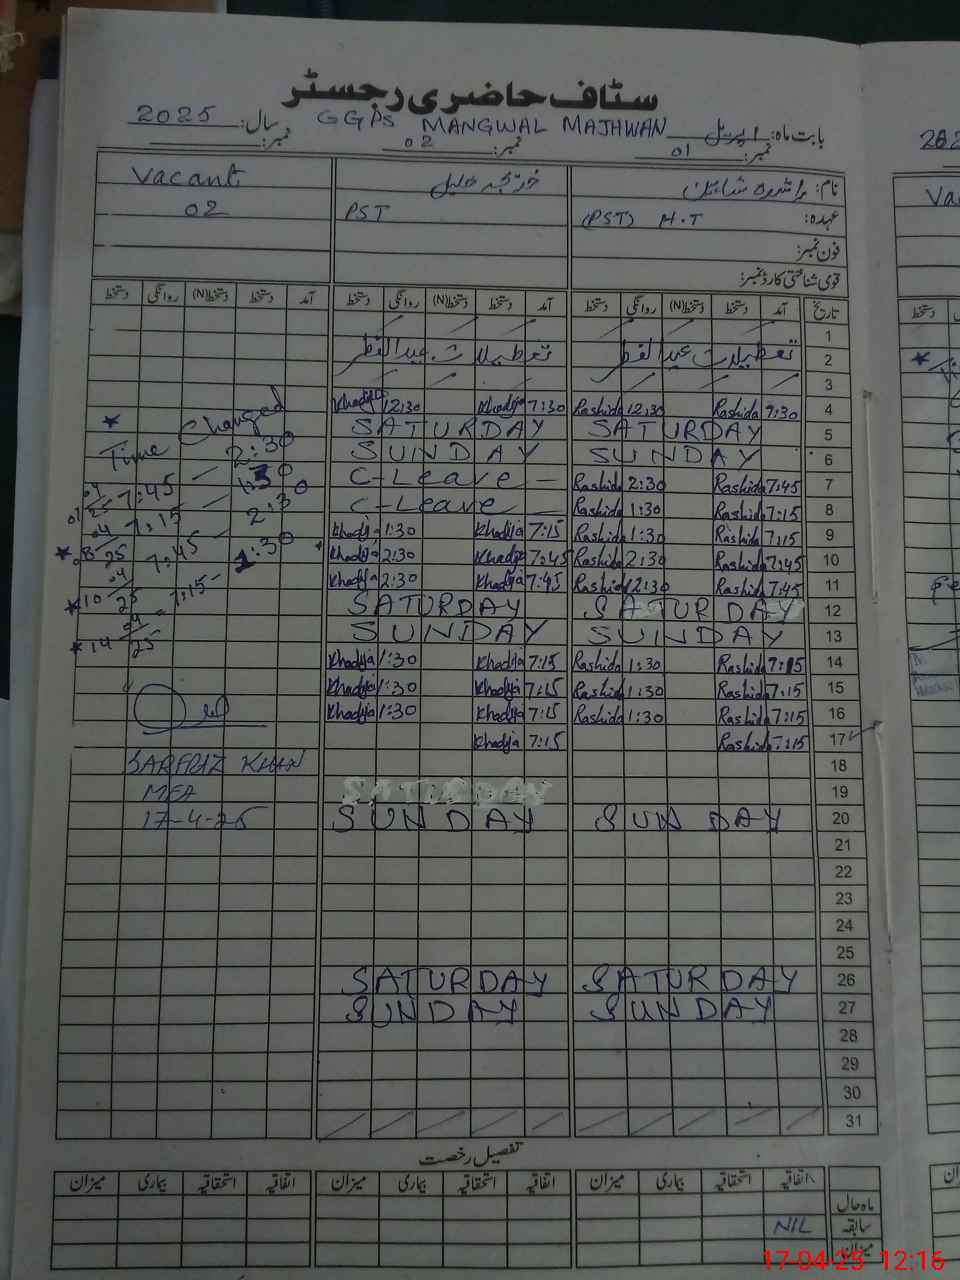 سٹاف حاضری رجسٹر
بابت ماہ: اپریل GGPS MANGWAL MAJHWAN سال: 2025
نمبر: 01 نمبر: 02 نمبر:
نام: راشدہ شاہین خدیجہ خلیل Vacant
عہدہ: (PST) H.T PST 02
فون نمبر:
قومی شناختی کارڈ نمبر:
تاریخ آمد دستخط دستخط(N) روانگی دستخط آمد دستخط دستخط(N) روانگی دستخط آمد دستخط دستخط(N) روانگی دستخط
1
2 تعطیلات عیدالفطر تعطیلات عیدالفطر
3
4 7:30 Rashida 12:30 Rashida 7:30 Khadija 12:30 Khadija
5 SATURDAY SATURDAY
6 SUNDAY SUNDAY
7 7:45 Rashida 2:30 Rashida C-Leave
8 7:15 Rashida 1:30 Rashida C-Leave
9 7:15 Rashida 1:30 Rashida 7:15 Khadija 1:30 Khadija
10 7:45 Rashida 2:30 Rashida 7:45 Khadija 2:30 Khadija
11 7:45 Rashida 12:30 Rashida 7:45 Khadija 2:30 Khadija
12 SATURDAY SATURDAY
13 SUNDAY SUNDAY
14 7:15 Rashida 1:30 Rashida 7:15 Khadija 1:30 Khadija
15 7:15 Rashida 1:30 Rashida 7:15 Khadija 1:30 Khadija
16 7:15 Rashida 1:30 Rashida 7:15 Khadija 1:30 Khadija
17 7:15 Rashida 7:15 Khadija
18
19 SATURDAY
20 SUNDAY SUNDAY
21
22
23
24
25
26 SATURDAY SATURDAY
27 SUNDAY SUNDAY
28
29
30
31
Time Changed
7:45 - 2:30
8/04/25 7:15 - 1:30
10/04/25 7:45 - 2:30
14/04/25 7:15 - 1:30
SARFRAZ KHAN
MEA
17-4-25
تفصیل رخصت
اتفاقیہ استحقاقیہ بیماری میزان اتفاقیہ استحقاقیہ بیماری میزان اتفاقیہ استحقاقیہ بیماری میزان
ماہ حال
سابقہ NIL
میزان
17-04-25 12:16